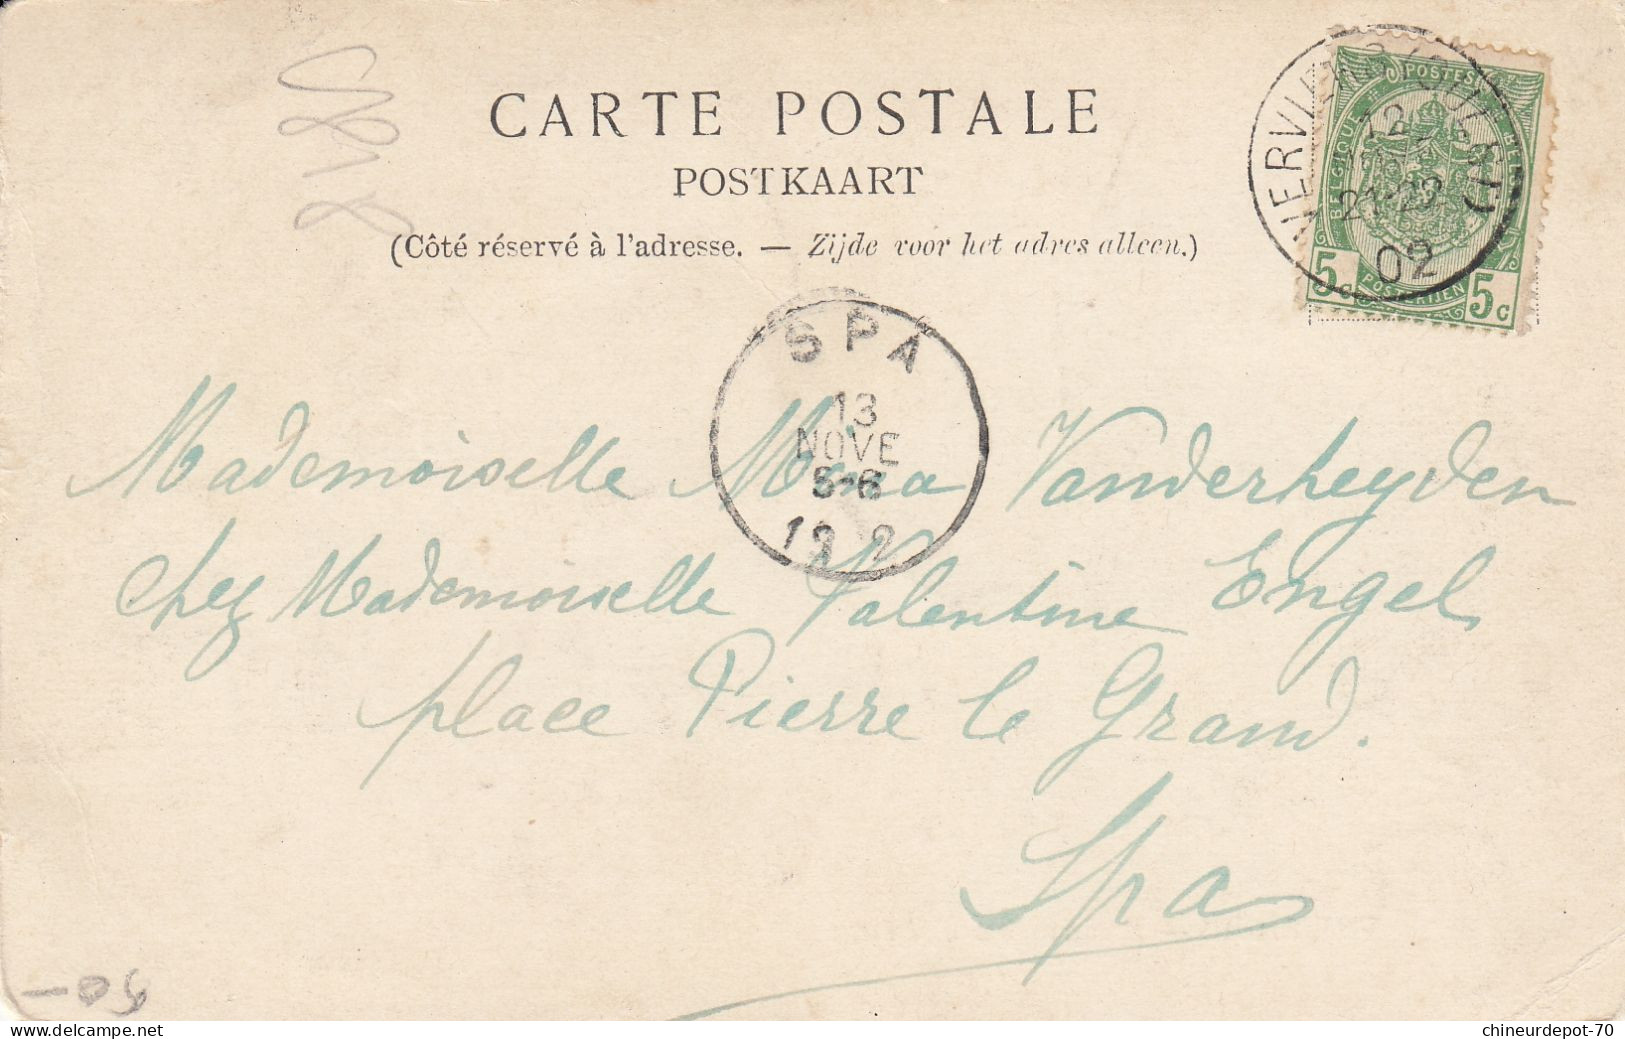 CARTE POSTALE
POSTKAART
(Côté réservé à l'adresse. — Zijde voor het adres alleen.)
POSTES
BELGIQUE
5c
POSTERIJEN
5c
12
21-23
02
SPA
13
NOVE
5-6
19 2
Mademoiselle Mina Vanderheyden
chez Mademoiselle Valentine Engel
place Pierre le Grand.
Spa
chineurdepot-70